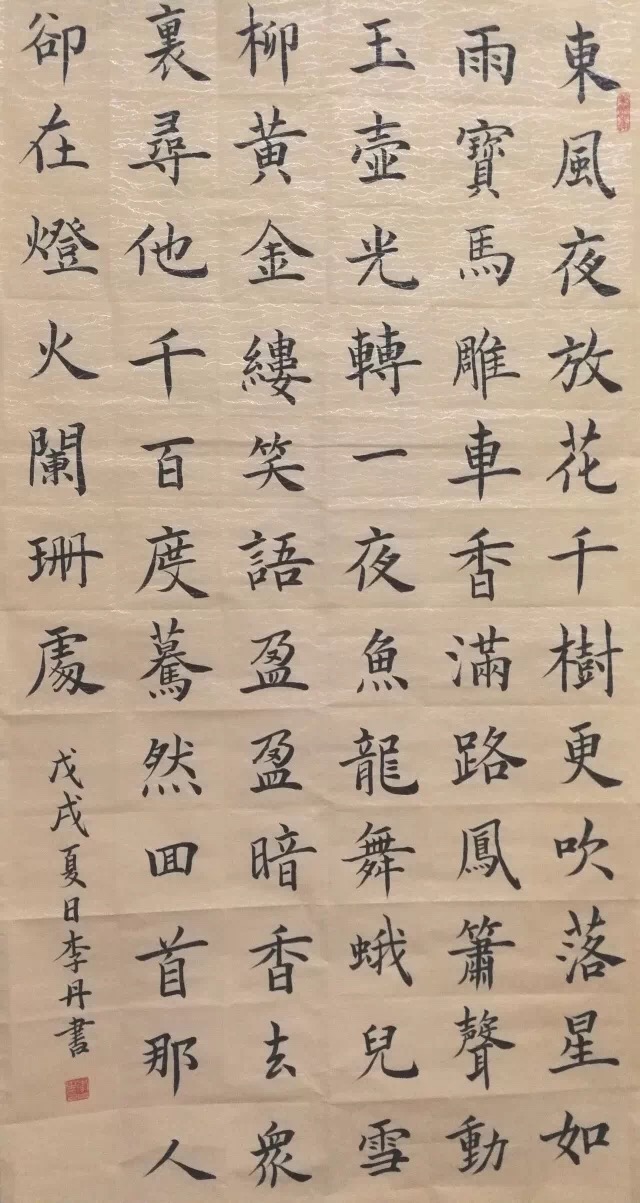 東風夜放花千樹更吹落星如
雨寶馬雕車香滿路鳳簫聲動
玉壺光轉一夜魚龍舞蛾兒雪
柳黃金縷笑語盈盈暗香去眾
裏尋他千百度驀然回首那人
卻在燈火闌珊處
戊戌夏日李丹書